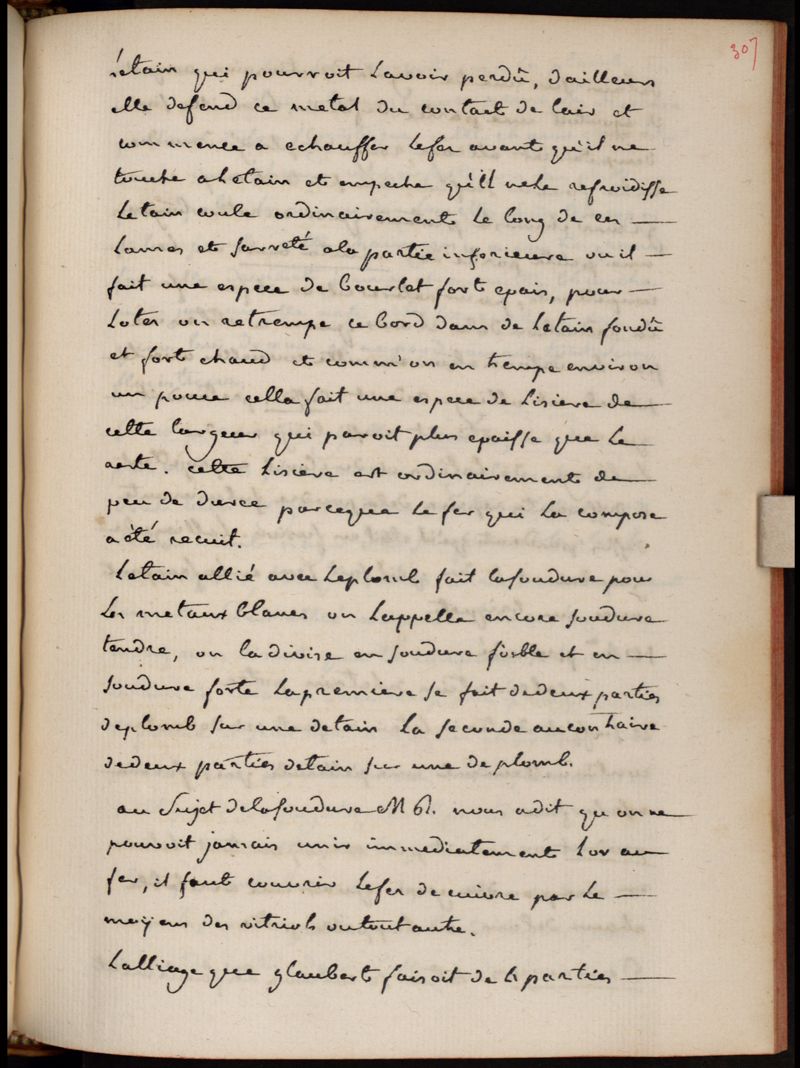 307
l'etain qui pourroit lavoir perdû, dailleurs
elle defend ce metal du contact de lair et
commence a echauffer lefer avant qu'il ne
touche a letain et empeche qu'il nele refroidisse
letain coule ordinairement le long de ces
lames et sarreté ala partie inferieure ou il
fait une espece de bourlet fort epais, pour
loter on retrempe ce bord dans de letain fondû
et fort chaud et comm'on en trempe environ
un pouce cella fait une espece de lisiere de
cette largeur qui paroit plus epaisse que le
reste. cette lisiere est ordinairement de
peu de duree parceque le fer qui la compose
a été recuit.
letain allié avec leplomb fait lasoudure pour
les metaux blancs on lappelle encore soudure
tendre, on la divise en soudure foible et en
soudure forte lapremiere se fait dedeux parties
deplomb sur une detain la seconde aucontraire
dedeux parties detain sur une de plomb.
au sujet delasoudure M B. nous adit qu on ne
pouvoit jamais unir immediatement lor au
fer, il faut couvrir lefer decuivre par le
moÿens des vitriols outout autre.
lalliage que glaubert faisoit de 4 parties